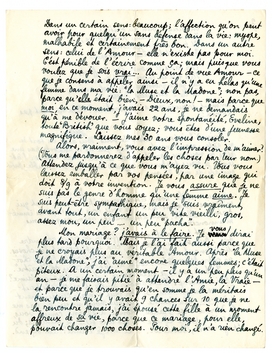 Dans un certain sens : beaucoup ; l'affection qu'on peut
avoir pour quelqu'un sans défense dans la vie : myope,
malhabile et certainement très bon. Dans un autre
sens : celui de l'Amour - elle n'existe pas pour moi.
C'est pénible de l'écrire comme ça ; mais puisque vous
voulez que je sois vrai... Au point de vue Amour - ce
que je consens à appeler ainsi - il n'y a eu qu'une
femme dans ma vie : "la Muse et la Madone" ; non pas
parce qu'elle était bien - Dieux, non ! - mais parce que
moi, en ce moment, j'avais 22 ans, je ne demandais
qu'à me dévouer. J'aime votre spontanéité, Eveline,
tout "British" que vous soyez ; vous êtes d'une jeunesse
magnifique. Laissez-moi 30 ans vous connaître.
Alors, vraiment, vous avez l'impression de
(Vous me pardonnerez d'appeler les choses par leur nom)
Attendez jusqu'à ce que vous m'ayez vu. Vous vous
laissez emballer par vos pensées, par une image qui
doit être à votre invention. Je vous assure que je ne
suis pas le genre d'homme qu'une femme aime. Je
suis peut-être sympathique, mais je suis vraiment,
avant tout, un enfant un peu vite vieilli, gros,
assez mou, un peu - un peu "pacha".
Mon mariage ? J'avais à le faire. Je vous dirai
plus tard pourquoi. Mais je l'ai fait aussi parce que
je ne croyais plus au véritable Amour. Après "la Muse
et la Madone", j'ai aimé encore quelques femmes ; c'était
piteux. A un certain moment - il y a un peu plus qu'un
an - je me faisais prêt à attendre l'Amie, la Vraie -
et parce que je trouvais qu'en somme je la méritais
bien peu et qu'il y avait 9 chances sur 10 que je ne
la rencontre jamais, j'ai épousé cette fille à un moment
affreux de sa vie, parce que ce mariage, pour elle,
pouvait changer 1000 choses. Pour moi, il n'a rien changé.